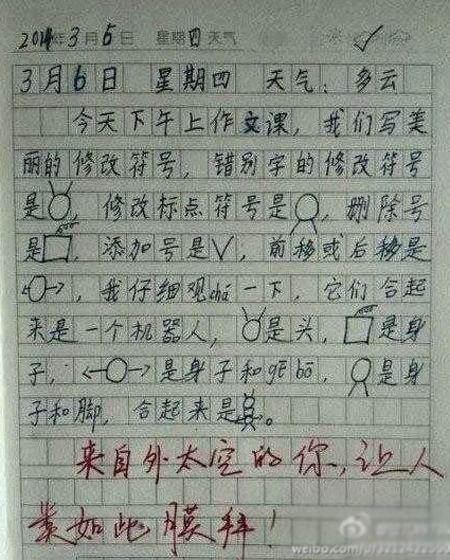 2014年3月6日 星期四天气
3月6日 星期四 天气:多云
今天下午上作文课,我们写美
丽的修改符号,错别字的修改符号
是,修改标点符号是,删除号
是,添加号是√,前移或后移是
,我仔细观chá一下,它们合起
来是一个机器人,是头,是身
子,是身子和gē bō,是身
子和脚,合起来是。
来自外太空的你,让人
类如此膜拜!
weibo.com/